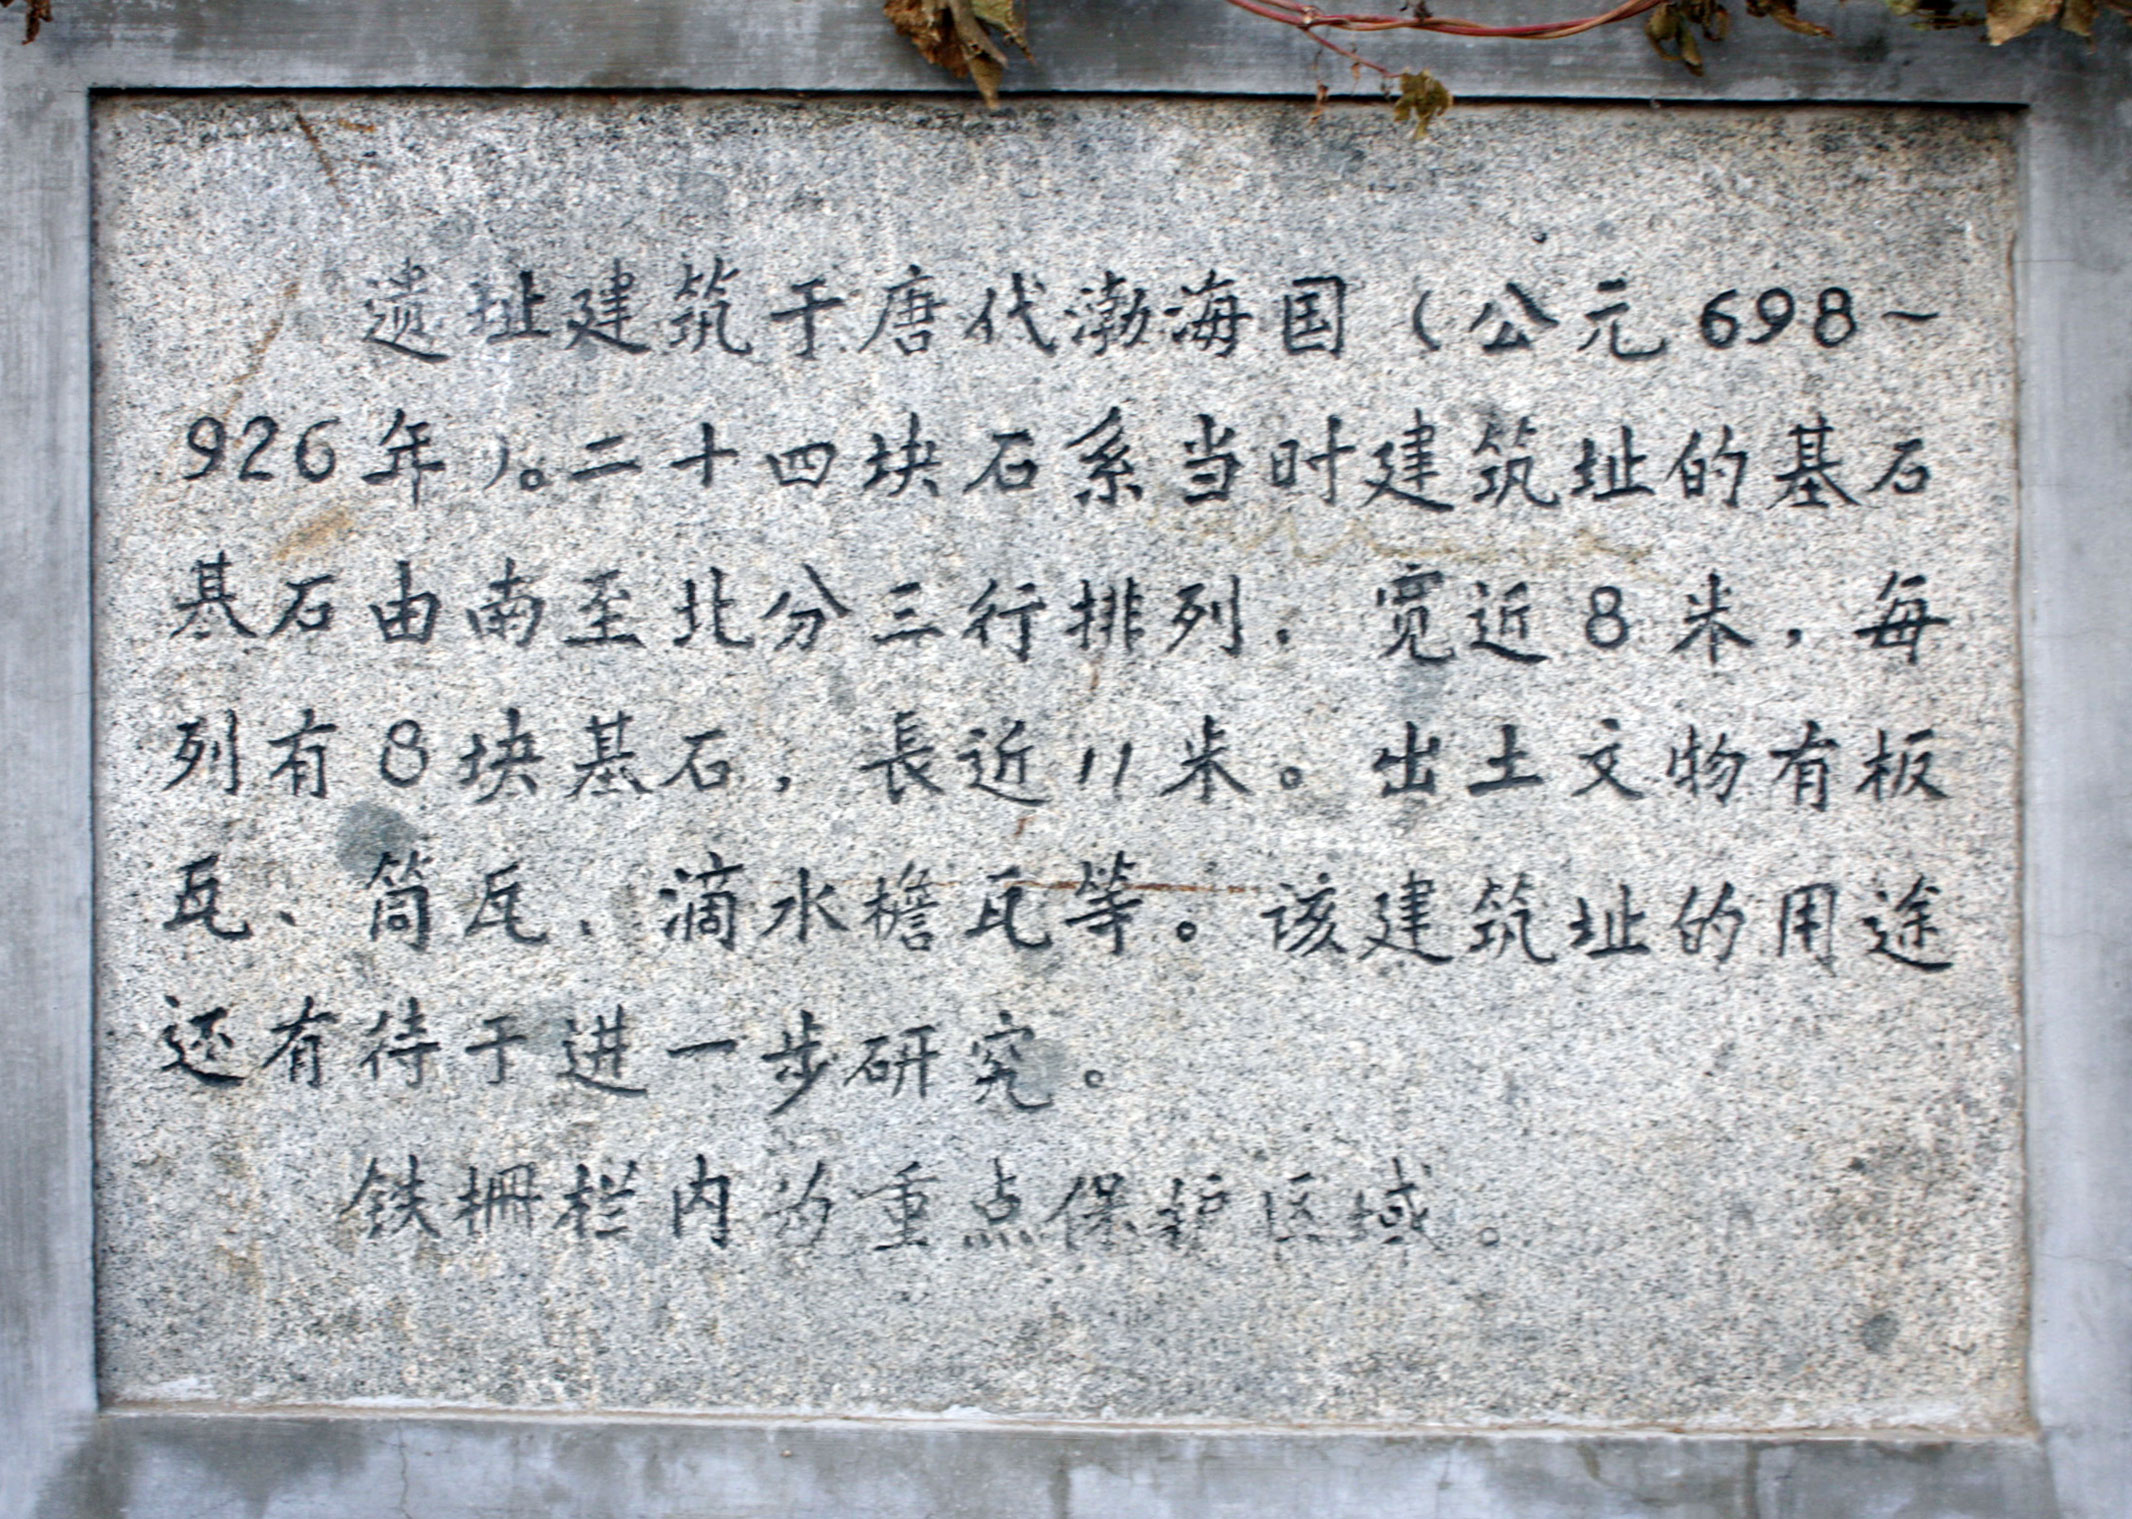 遗址建筑于唐代渤海国（公元698~
926年）。二十四块石系当时建筑址的基石
基石由南至北分三行排列．宽近8米，每
列有8块基石，長近11米。出土文物有板
瓦、筒瓦、滴水檐瓦等。该建筑址的用途
还有待于进一步研究。
铁栅栏内为重点保护区域。